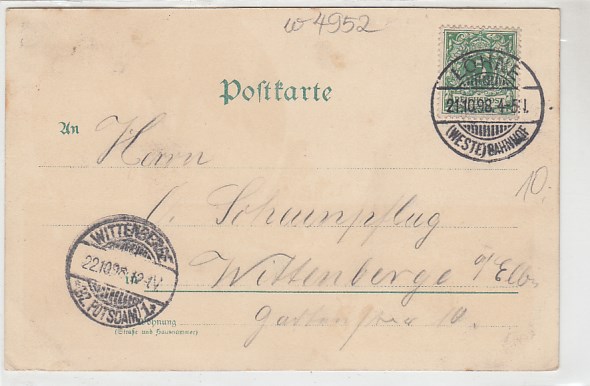 w 4952
Postkarte
LÖHNE
21.10.98.4-5N.
(WESTF.) BAHNHOF
An
Herrn
C. Schumpflug
10.
Wittenberge a/Elbe
Gartenstr 10.
WITTENBERGE
22.10.98.
*BZ. POTSDAM) 1*
Wohnung
(Straße und Hausnummer)